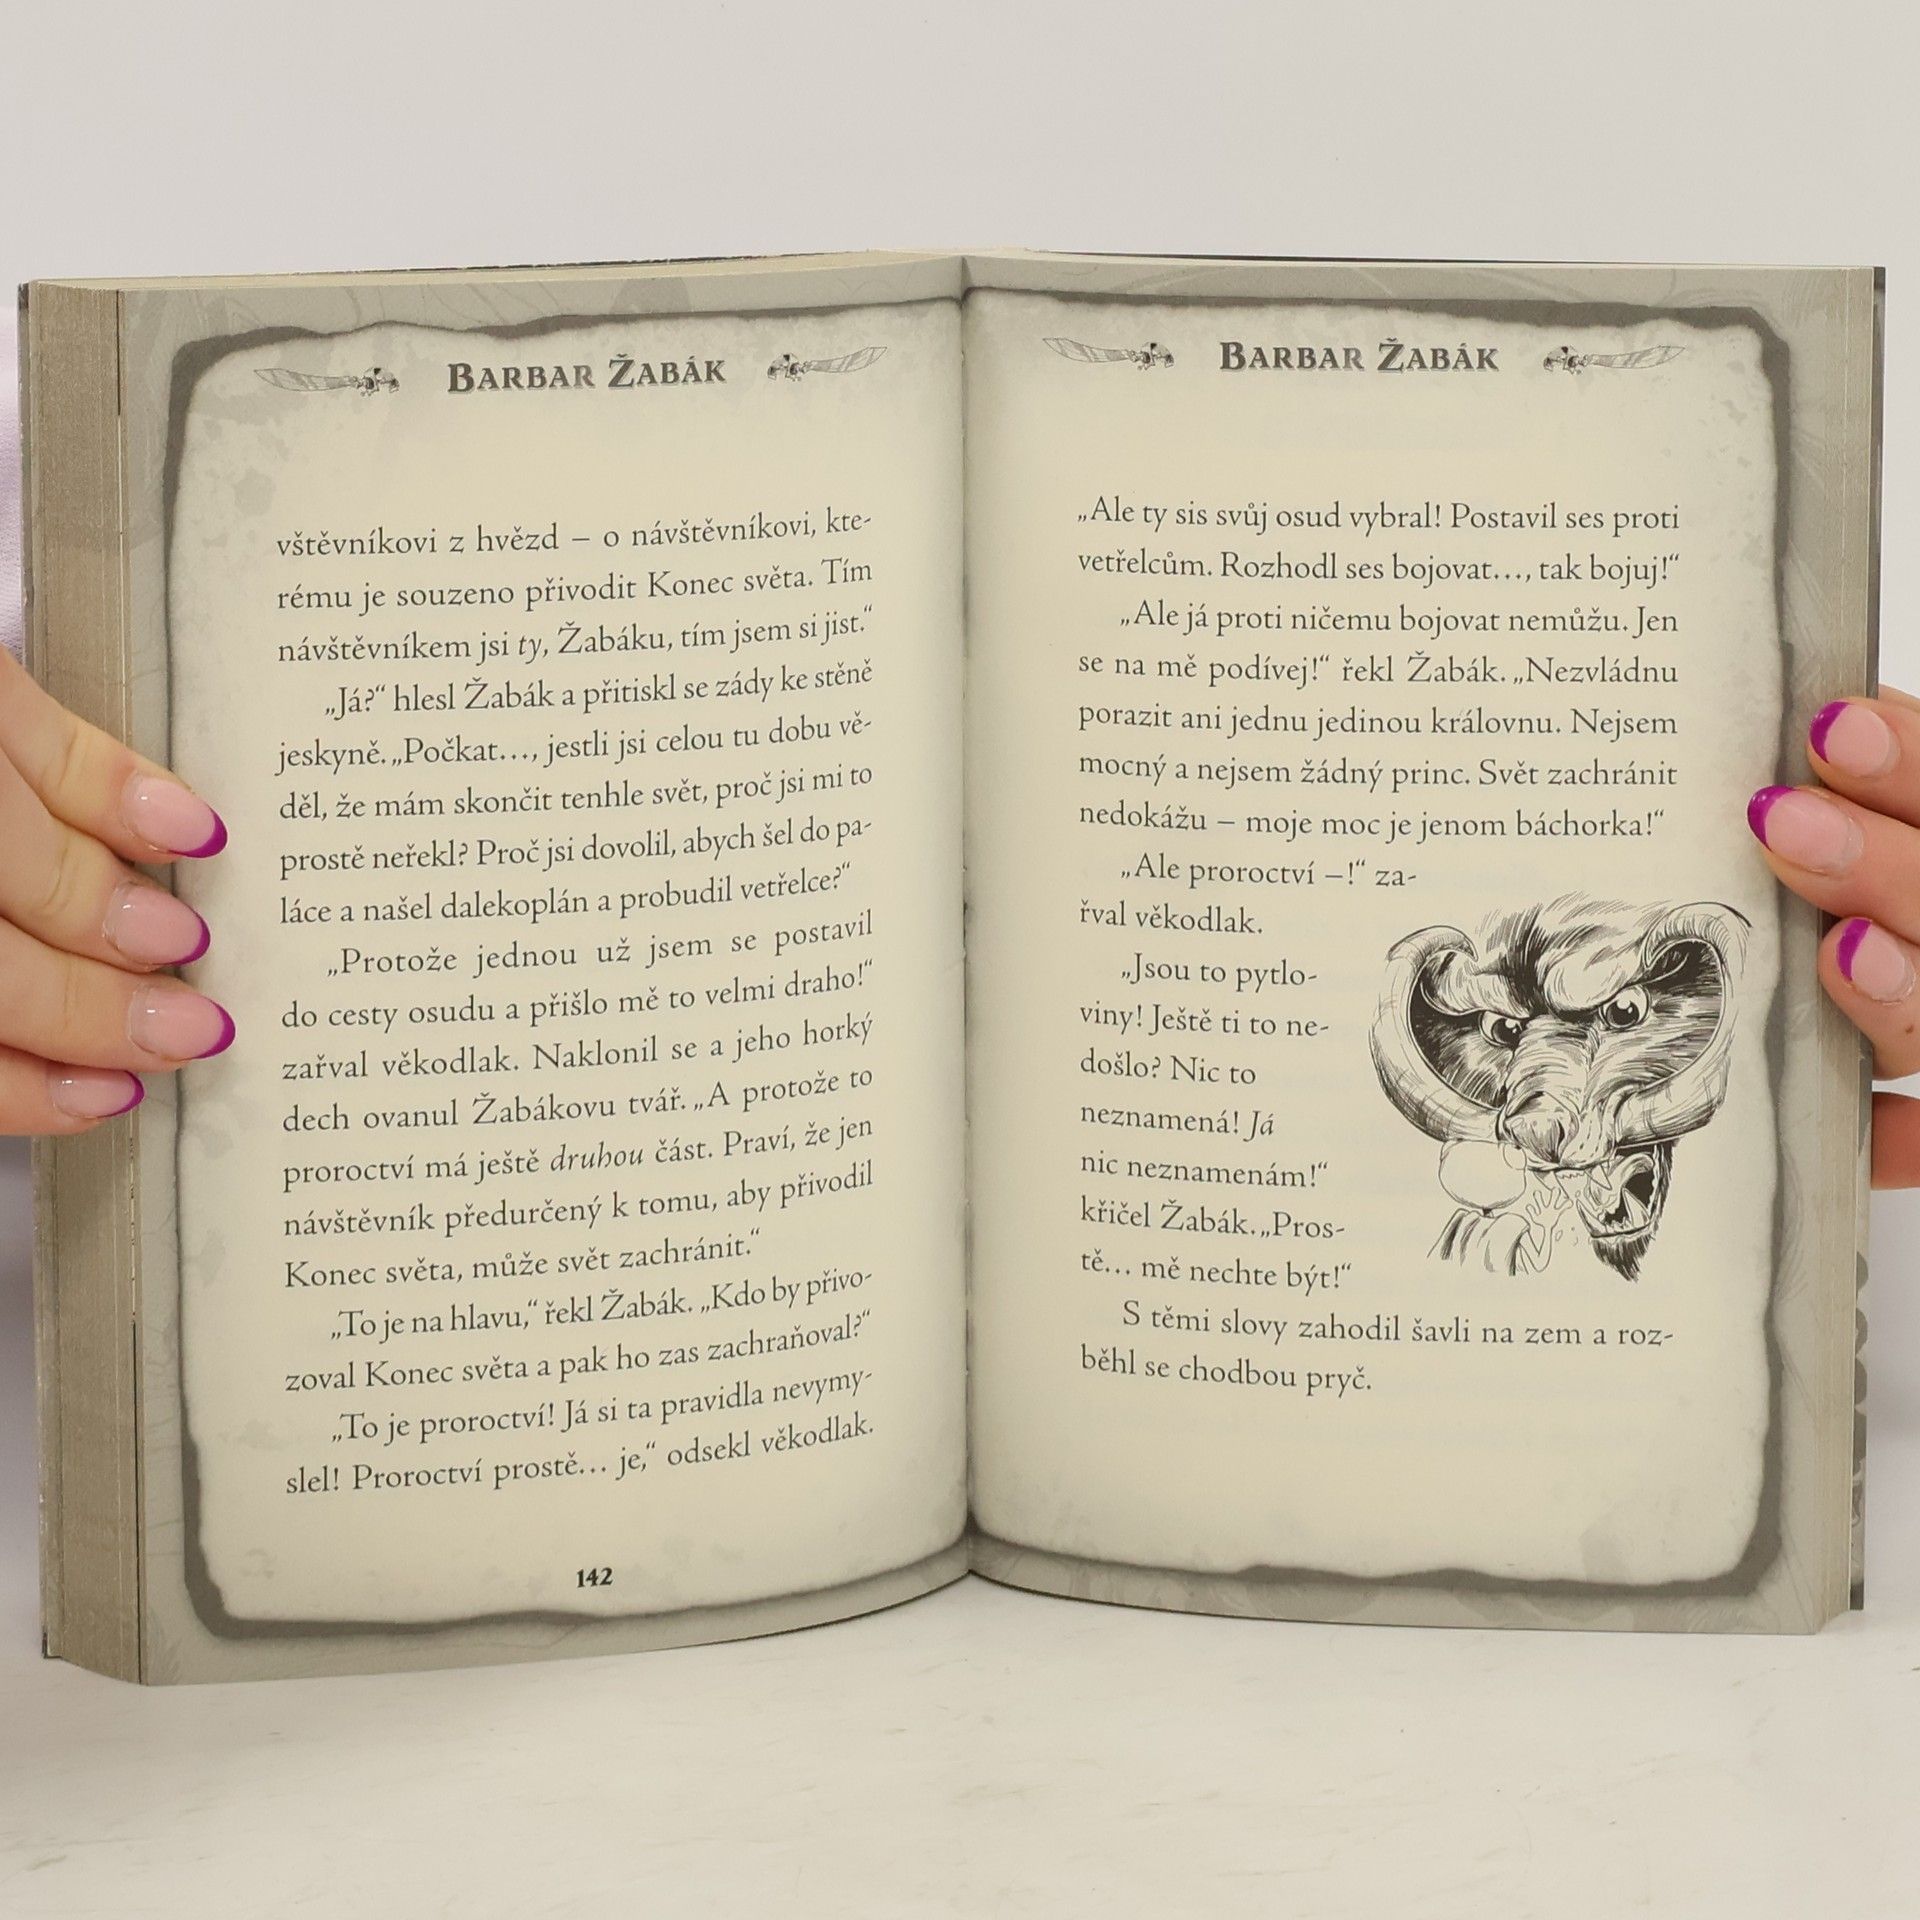 BARBAR ŽABÁK
vštěvníkovi z hvězd – o návštěvníkovi, kte-
rému je souzeno přivodit Konec světa. Tím
návštěvníkem jsi ty, Žabáku, tím jsem si jist.“
„Já?“ hlesl Žabák a přitiskl se zády ke stěně
jeskyně. „Počkat…, jestli jsi celou tu dobu vě-
děl, že mám skončit tenhle svět, proč jsi mi to
prostě neřekl? Proč jsi dovolil, abych šel do pa-
láce a našel dalekoplán a probudil vetřelce?“
„Protože jednou už jsem se postavil
do cesty osudu a přišlo mě to velmi draho!“
zařval věkodlak. Naklonil se a jeho horký
dech ovanul Žabákovu tvář. „A protože to
proroctví má ještě druhou část. Praví, že jen
návštěvník předurčený k tomu, aby přivodil
Konec světa, může svět zachránit.“
„To je na hlavu,“ řekl Žabák. „Kdo by přivo-
zoval Konec světa a pak ho zas zachraňoval?“
„To je proroctví! Já si ta pravidla nevymy-
slel! Proroctví prostě… je,“ odsekl věkodlak.
142
BARBAR ŽABÁK
„Ale ty sis svůj osud vybral! Postavil ses proti
vetřelcům. Rozhodl ses bojovat…, tak bojuj!“
„Ale já proti ničemu bojovat nemůžu. Jen
se na mě podívej!“ řekl Žabák. „Nezvládnu
porazit ani jednu jedinou královnu. Nejsem
mocný a nejsem žádný princ. Svět zachránit
nedokážu – moje moc je jenom báchorka!“
„Ale proroctví –!“ za-
řval věkodlak.
„Jsou to pytlo-
viny! Ještě ti to ne-
došlo? Nic to
neznamená! Já
nic neznamenám!“
křičel Žabák. „Pros-
tě… mě nechte být!“
S těmi slovy zahodil šavli na zem a roz-
běhl se chodbou pryč.